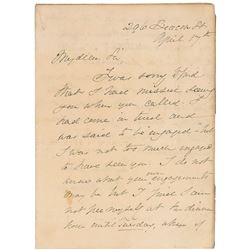 296 Beacon St.
April 17th
My dear Sir,
I was sorry to find
that I have missed seeing
you when you called. I
had come in tired and
was said to be engaged but
I was not too much engaged
to have seen you. I do not
know what your engagements
may be but I fear I am
not free myself at the dinner
hour until Tuesday, when if